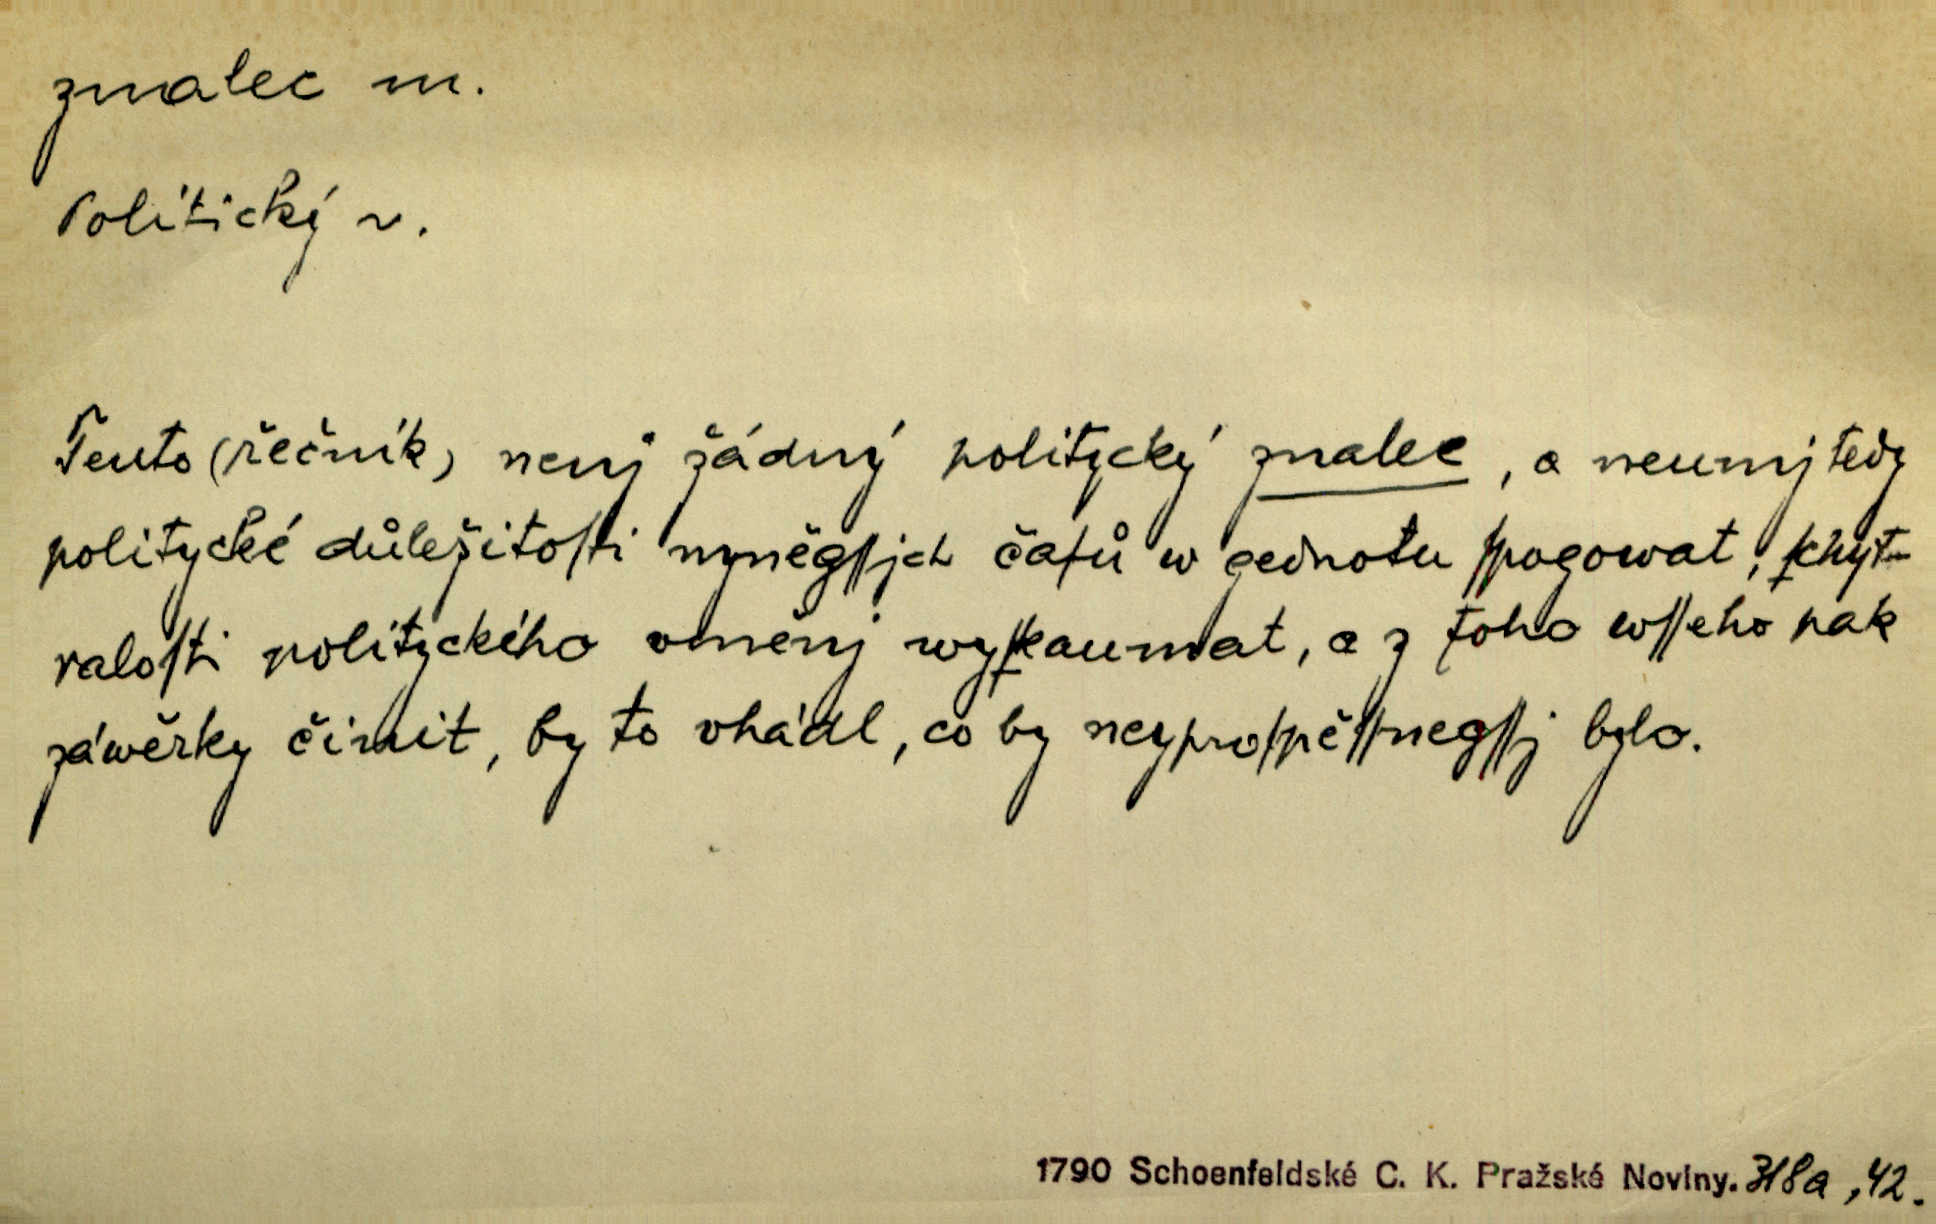 znalec m.
Politický ~.
Tento (řečník) nenj žádný politycký znalec, a neumj tedy
politycké důležitoſti nyněgſſjch čaſů w gednotu ſpogowat, ſchyt-
raloſti polityckého vměnj wyſkaumat, a z toho wſſeho pak
záwěrky činit, by to vhádl, co by neyproſpěſſnegſſj bylo.
1790 Schoenfeldské C. K. Pražské Noviny. 318a, 42.